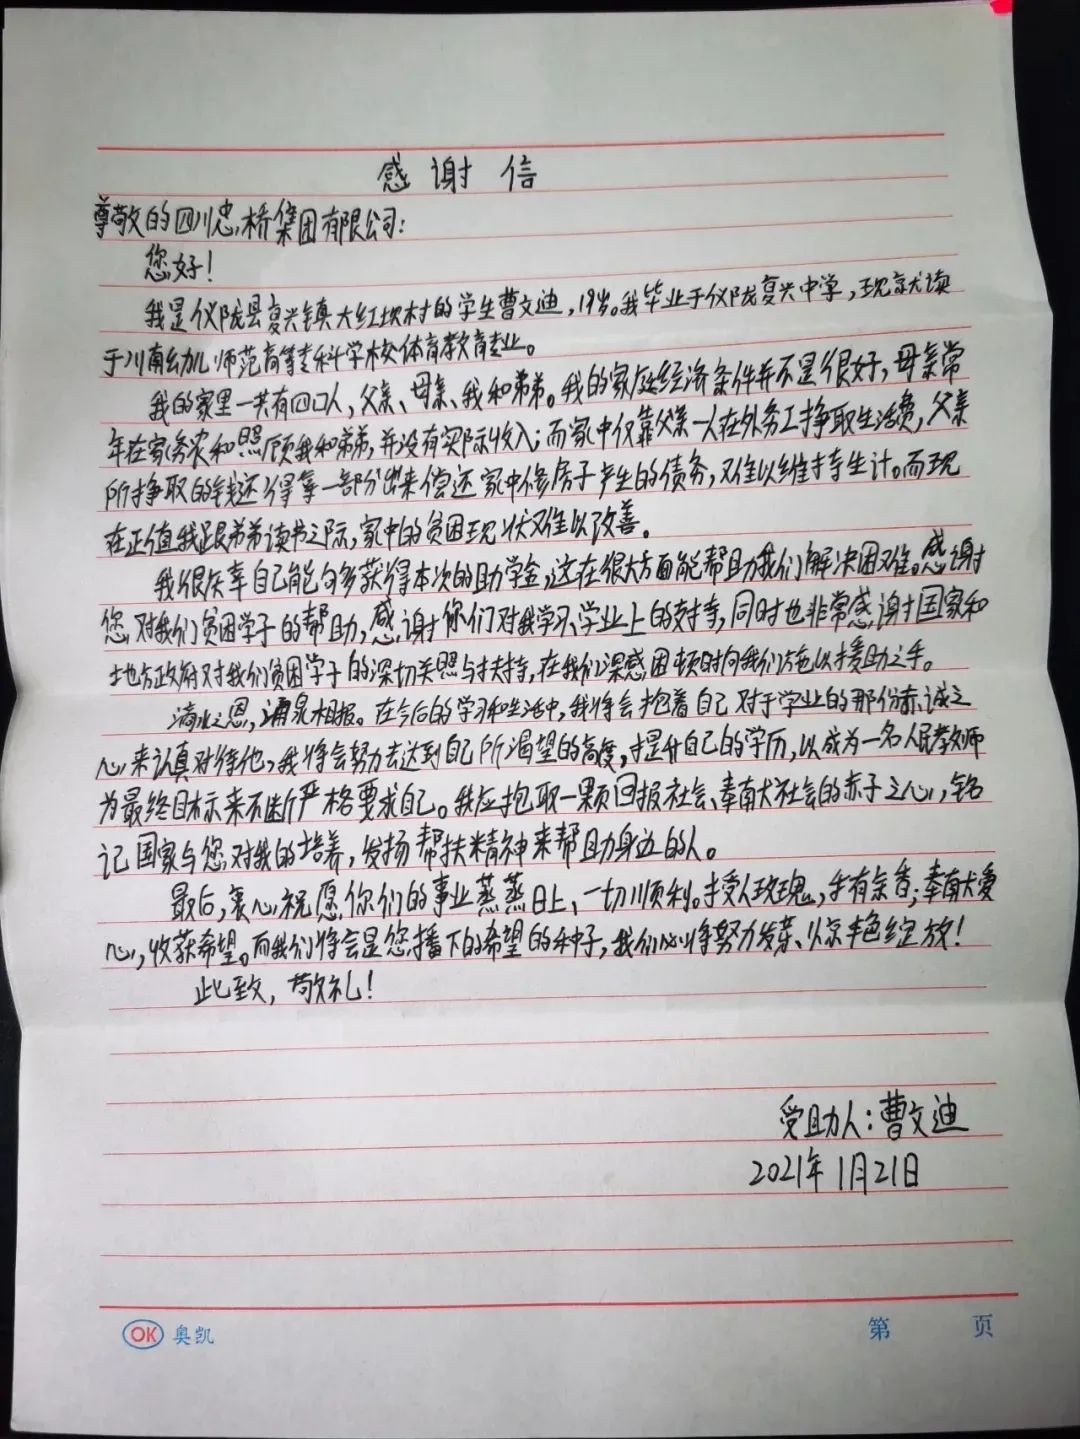 感谢信
尊敬的四川忠桥集团有限公司:
您好!
我是仪陇县复兴镇大红坝村的学生曹文迪,19岁。我毕业于仪陇复兴中学,现就读
于川南幼儿师范高等专科学校体育教育专业。
我的家里一共有四口人,父亲、母亲、我和弟弟。我的家庭经济条件并不是很好,母亲常
年在家务农和照顾我和弟弟,并没有实际收入;而家中仅靠父亲一人在外务工挣取生活费,父亲
所挣取的钱还得拿一部分出来偿还家中修房子产生的债务,又难以维持生计。而现
在正值我跟弟弟读书之际,家中的贫困现状又难以改善。
我很庆幸自己能够获得本次的助学金,这在很大方面能帮助我们解决困难。感谢
您对我们贫困学子的帮助,感谢你们对我学习、学业上的支持,同时也非常感谢国家和
地方政府对我们贫困学子的深切关照与扶持,在我们深感困顿时向我们施以援助之手。
滴水之恩,涌泉相报。在今后的学习和生活中,我将会抱着自己对于学业的那份赤诚之
心来认真对待他,我将会努力去达到自己所渴望的高度,提升自己的学历,以成为一名人民教师
为最终目标来不断严格要求自己。我应抱取一颗回报社会、奉献社会的赤子之心,铭
记国家与您对我的培养,发扬帮扶精神来帮助身边的人。
最后,衷心祝愿你们的事业蒸蒸日上、一切顺利。授人玫瑰,手有余香;奉献大爱
心,收获希望。而我们将会是您播下的希望的种子,我们必将努力发芽、绽放!
此致,敬礼!
受助人:曹文迪
2021年1月21日
OK 奥凯
第 页